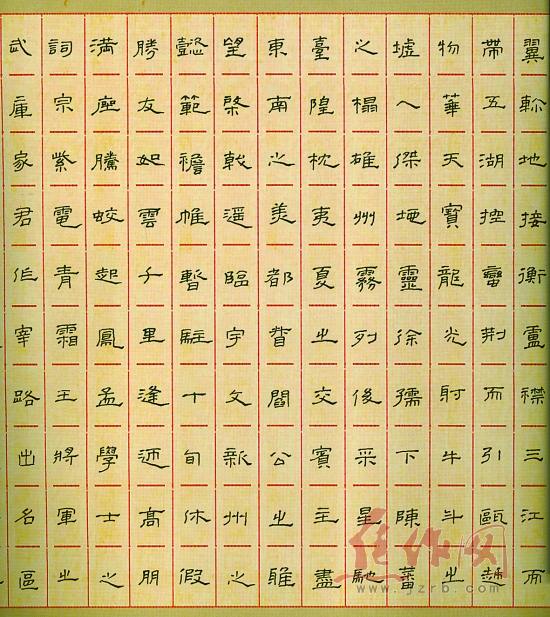 翼軫地接衡盧襟三江而
帶五湖控蠻荊而引甌越
物華天寶龍光射牛斗之
墟人傑地靈徐孺下陳蕃
之榻雄州霧列俊采星馳
臺隍枕夷夏之交賓主盡
東南之美都督閻公之雅
望棨戟遥臨宇文新州之
懿範襜帷暫駐十旬休假
勝友如雲千里逢迎高朋
滿座騰蛟起鳳孟學士之
詞宗紫電青霜王將軍之
武庫家君作宰路出名區
焦作网
www.jzrb.com